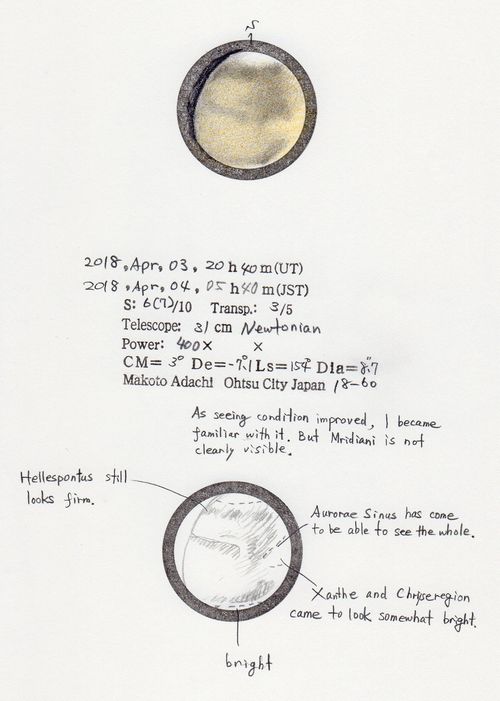 S
2018, Apr, 03, 20 h 40 m (UT)
2018, Apr, 04, 05 h 40 m (JST)
S: 6(7)/10 Transp.: 3/5
Telescope: 31 cm Newtonian
Power: 400× ×
CM= 3° De= -7.1° Ls= 154° Dia= 8.″7
Makoto Adachi Ohtsu City Japan 18-60
As seeing condition improved, I became
familiar with it. But Mridiani is not
clearly visible.
Hellespontus still
looks firm.
Aurorae Sinus has come
to be able to see the whole.
Xanthe and Chryseregion
came to look somewhat bright.
bright